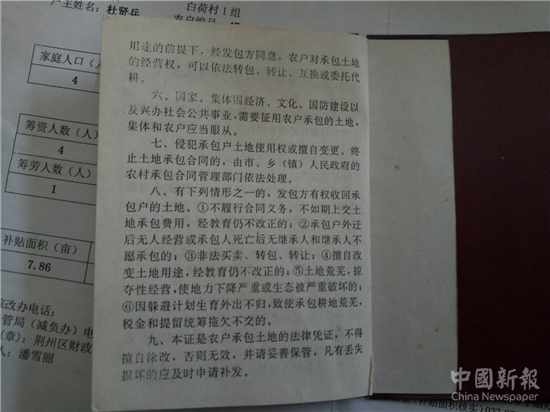 户主姓名：杜贤兵
白荷村1组
农户编号
家庭人口（人
4
筹资人数（人）
4
筹劳人数（人）
1
补贴面积（亩）
7.86
减改办电话：
管局（减负办）电
（章）：荆州区财政
人：潘雪丽
用途的前提下，经发包方同意，农户对承包土地
的经营权，可以依法转包、转让、互换或委托代
耕。
六、国家、集体因经济、文化、国防建设以
及兴办社会公共事业，需要征用农户承包的土地，
集体和农户应当服从。
七、侵犯承包户土地使用权或擅自变更、终
止土地承包合同的，由市、乡（镇）人民政府的
农村承包合同管理部门依法处理。
八、有下列情形之一的，发包方有权收回承
包户的土地。①不履行合同义务，不如期上交土
地承包费用，经教育仍不改正的；②承包户外迁
后无人经营或承包人死亡后无继承人和继承人不
愿承包的；③非法买卖、转包、转让；④擅自改
变土地用途，经教育仍不改正的；⑤土地荒芜，掠
夺性经营，使地力下降严重或生态被严重破坏的；
⑥因躲避计划生育外出不归，致使承包耕地荒芜，
税金和提留统筹拖欠不交的。
九、本证是农户承包土地的法律凭证，不得
擅自涂改，否则无效，并请妥善保管，凡有丢失
损坏的应及时申请补发。
中國新報
China Newspaper